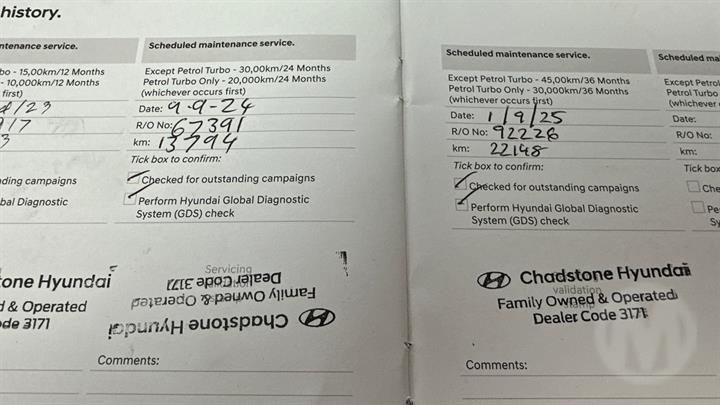 history.
ntenance service.
bo - 15,00km/12 Months
- 10,000km/12 Months
first)
/23
917
3
ding campaigns
bal Diagnostic
one Hyundai
d & Operated
ode 3171
Scheduled maintenance service.
Except Petrol Turbo - 30,00km/24 Months
Petrol Turbo Only - 20,000km/24 Months
(whichever occurs first)
Date: 9-9-24
R/O No: 67391
km: 13794
Tick box to confirm:
Checked for outstanding campaigns
Perform Hyundai Global Diagnostic
System (GDS) check
Servicing
Chadstone Hyundai
Family Owned & Operated
Dealer Code 3171
Comments:
Scheduled maintenance service.
Except Petrol Turbo - 45,00km/36 Months
Petrol Turbo Only - 30,000km/36 Months
(whichever occurs first)
Date: 1/9/25
R/O No: 92226
km: 22148
Tick box to confirm:
Checked for outstanding campaigns
Perform Hyundai Global Diagnostic
System (GDS) check
Chadstone Hyundai
validation
stamp
Family Owned & Operated
Dealer Code 3171
Comments:
Scheduled ma
Except Petrol
Petrol Turbo
(whichever
Date:
R/O No:
km:
Tick box
Che
Pe
Sy
M